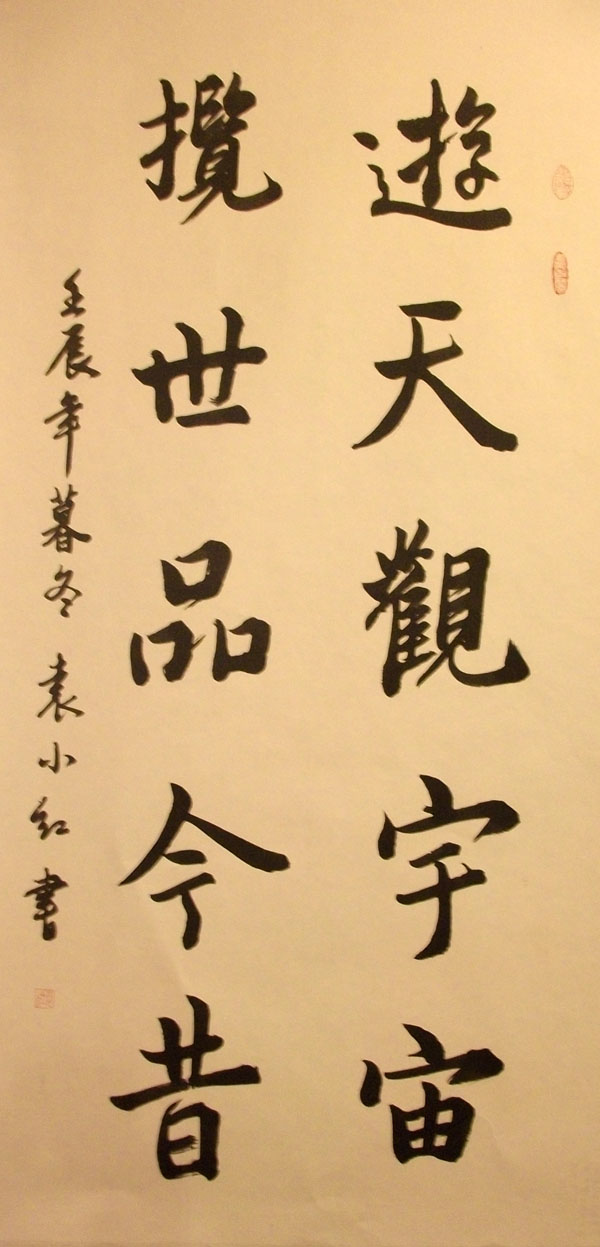 遊天觀宇宙
攬世品今昔
壬辰年暮冬 袁小紅書